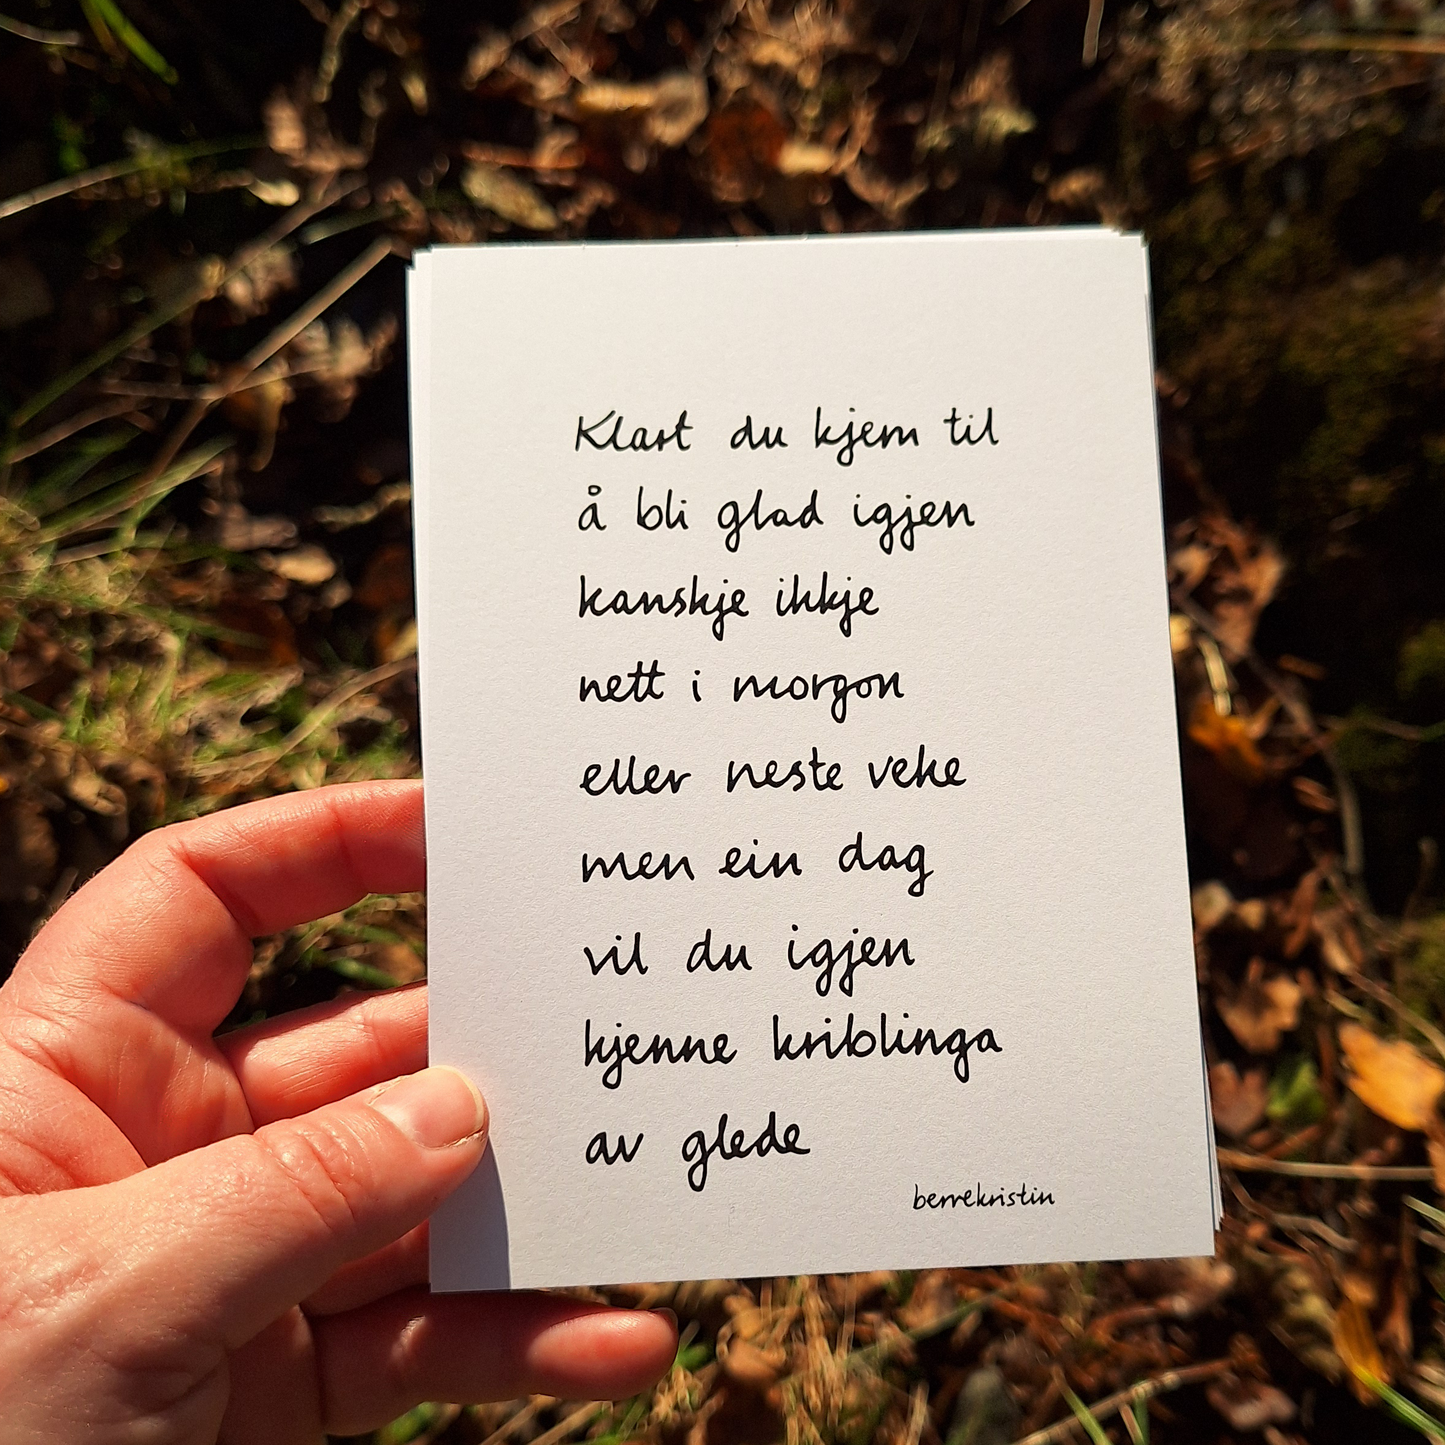 Klart du kjem til
å bli glad igjen
kanskje ikkje
nett i morgon
eller neste veke
men ein dag
vil du igjen
kjenne kriblinga
av glede
berrekristin